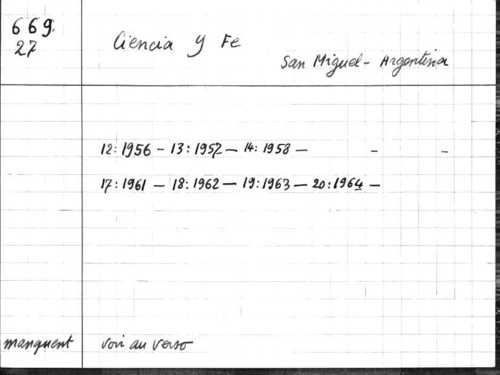 669.
27
Ciencia y Fe
San Miguel - Argentina
12: 1956 - 13: 1957 - 14: 1958 - - -
17: 1961 - 18: 1962 - 19: 1963 - 20: 1964 -
manquent voir au verso